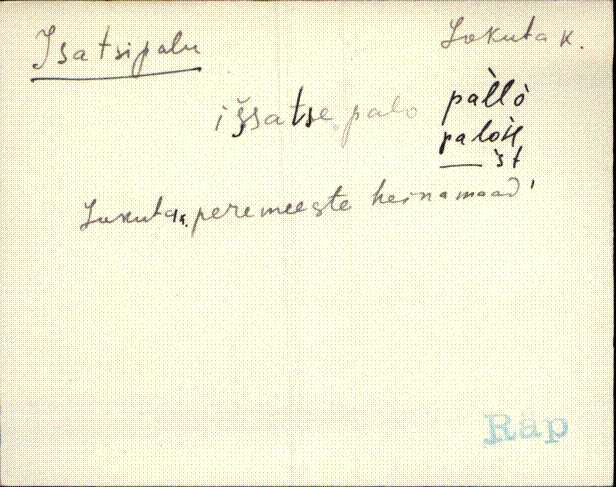 Isatsipalu
Lokuta k.
iššatse palo pallò
palòsse
— st
Lokuta k. peremeeste heinamaad
Rap